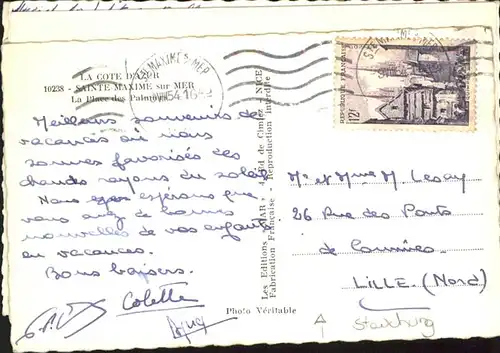 LA COTE D'AZUR
10238 - SAINTE MAXIME sur MER
La Place des Palmiers
STE MAXIME S. MER
54
Meilleurs souvenirs de
vacances où nous
sommes favorisés des
chauds rayons du soleil
Nous espérons que
vous avez de bonnes
nouvelles de vos enfants
en vacances.
Bons baisers.
Colette
Photo Véritable
Les Editions "MAR" Bd de Cimiez - NICE
Fabrication Française - Reproduction interdite
REPUBLIQUE FRANÇAISE
12F
Mr et Mme M. Lesay
26 Rue des Ponts
de Comines
LILLE. (Nord)